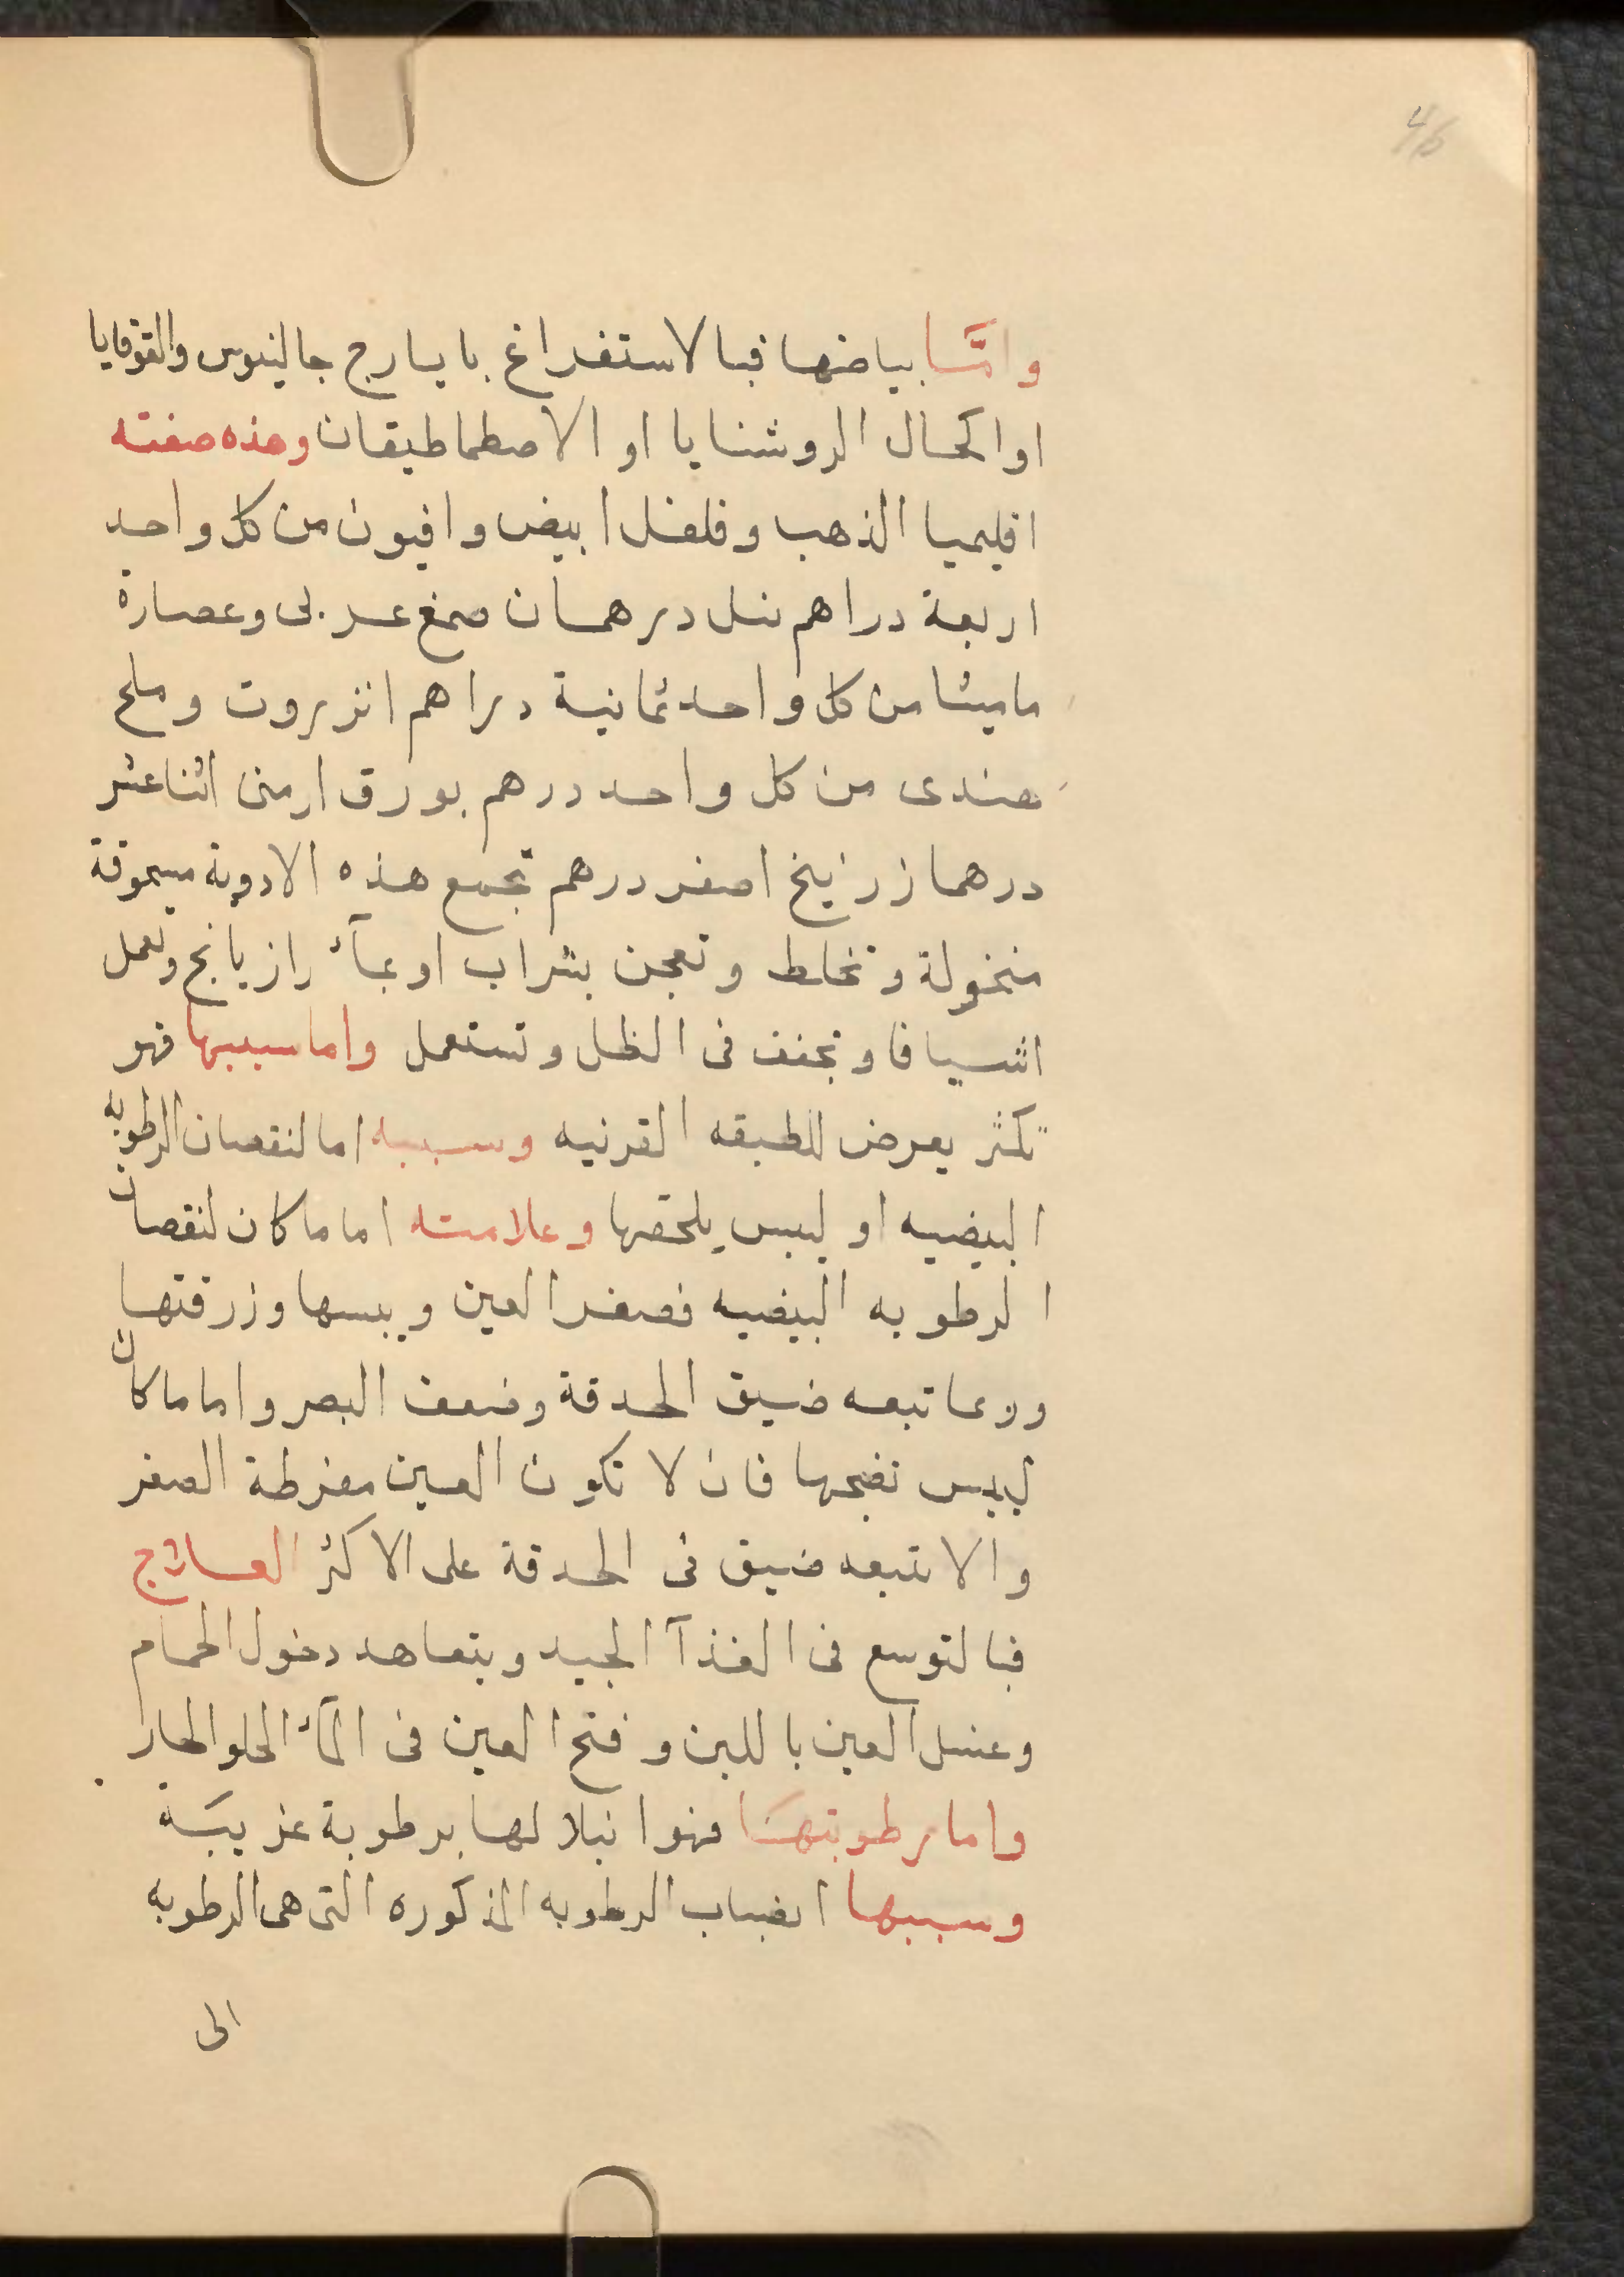 واما بياضها فبالاستفراغ بايارج جالينوس والقوقايا
او اكحال الروشنايا او الاصطماطيقان وهذه صفته
اقليميا الذهب وفلفل ابيض وافيون من كل واحد
اربعة دراهم درهمان صمغ عربى وعصارة
ماميثا من كل واحد ثمانية دراهم انزروت وملح
هندى من كل واحد درهم بورق ارمنى اثنا عشر
درهما زرنيخ اصفر درهم تجمع هذه الادوية مسحوقة
منخولة وتخلط وتعجن بشراب او بمآء رازيانج وتعمل
اشيافا وتجفف فى الظل وتستعمل واما سببها فهو
يعرض للطبقه القرنيه وسببه اما لنقصان الرطوبه
البيضيه او ليبس يلحقها وعلامته اما ما كان لنقصان
الرطوبه البيضيه فصغر العين ويبسها وزرقتها
وربما تبعه ضيق الحدقة وضعف البصر واما ما كان
ليبس فان لا تكون العين مفرطة الصغر
والا تتبعه ضيق فى الحدقة على الاكثر العلاج
فبالتوسع فى الغذآ الجيد ويتعاهد دخول الحمام
وغسل العين باللبن وفتح العين فى المآء الحلو الحار
واما رطوبتها فهو ابتلالها برطوبة غريبة
وسببها انصباب الرطوبه المذكوره التى هى الرطوبه
الى